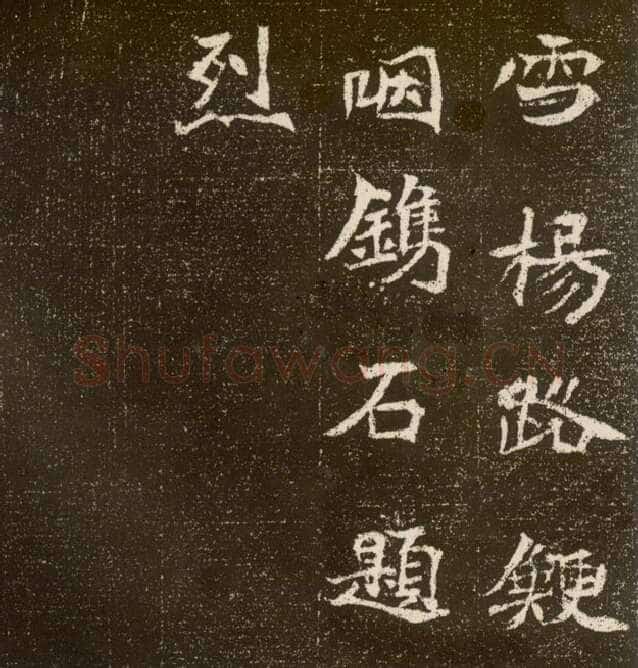 雪楊路鯁
咽鐫石題
烈
Shufawang.CN